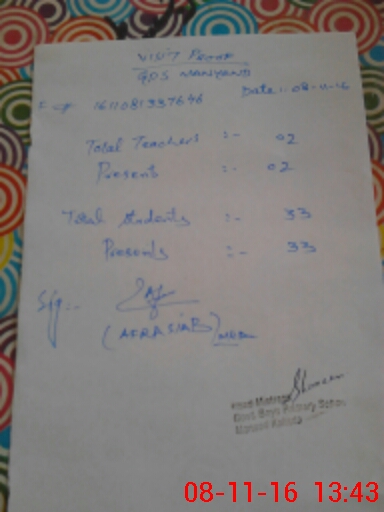 VISIT PROOF
GPS MANYAND
Date:- 08-11-16
1611081337646
Total Teachers :- 02
Present :- 02
Total students :- 33
Presents :- 33
Sig:-
(AFRASIAB)
Head Mistress
Govt. Boys Primary School
08-11-16 13:43